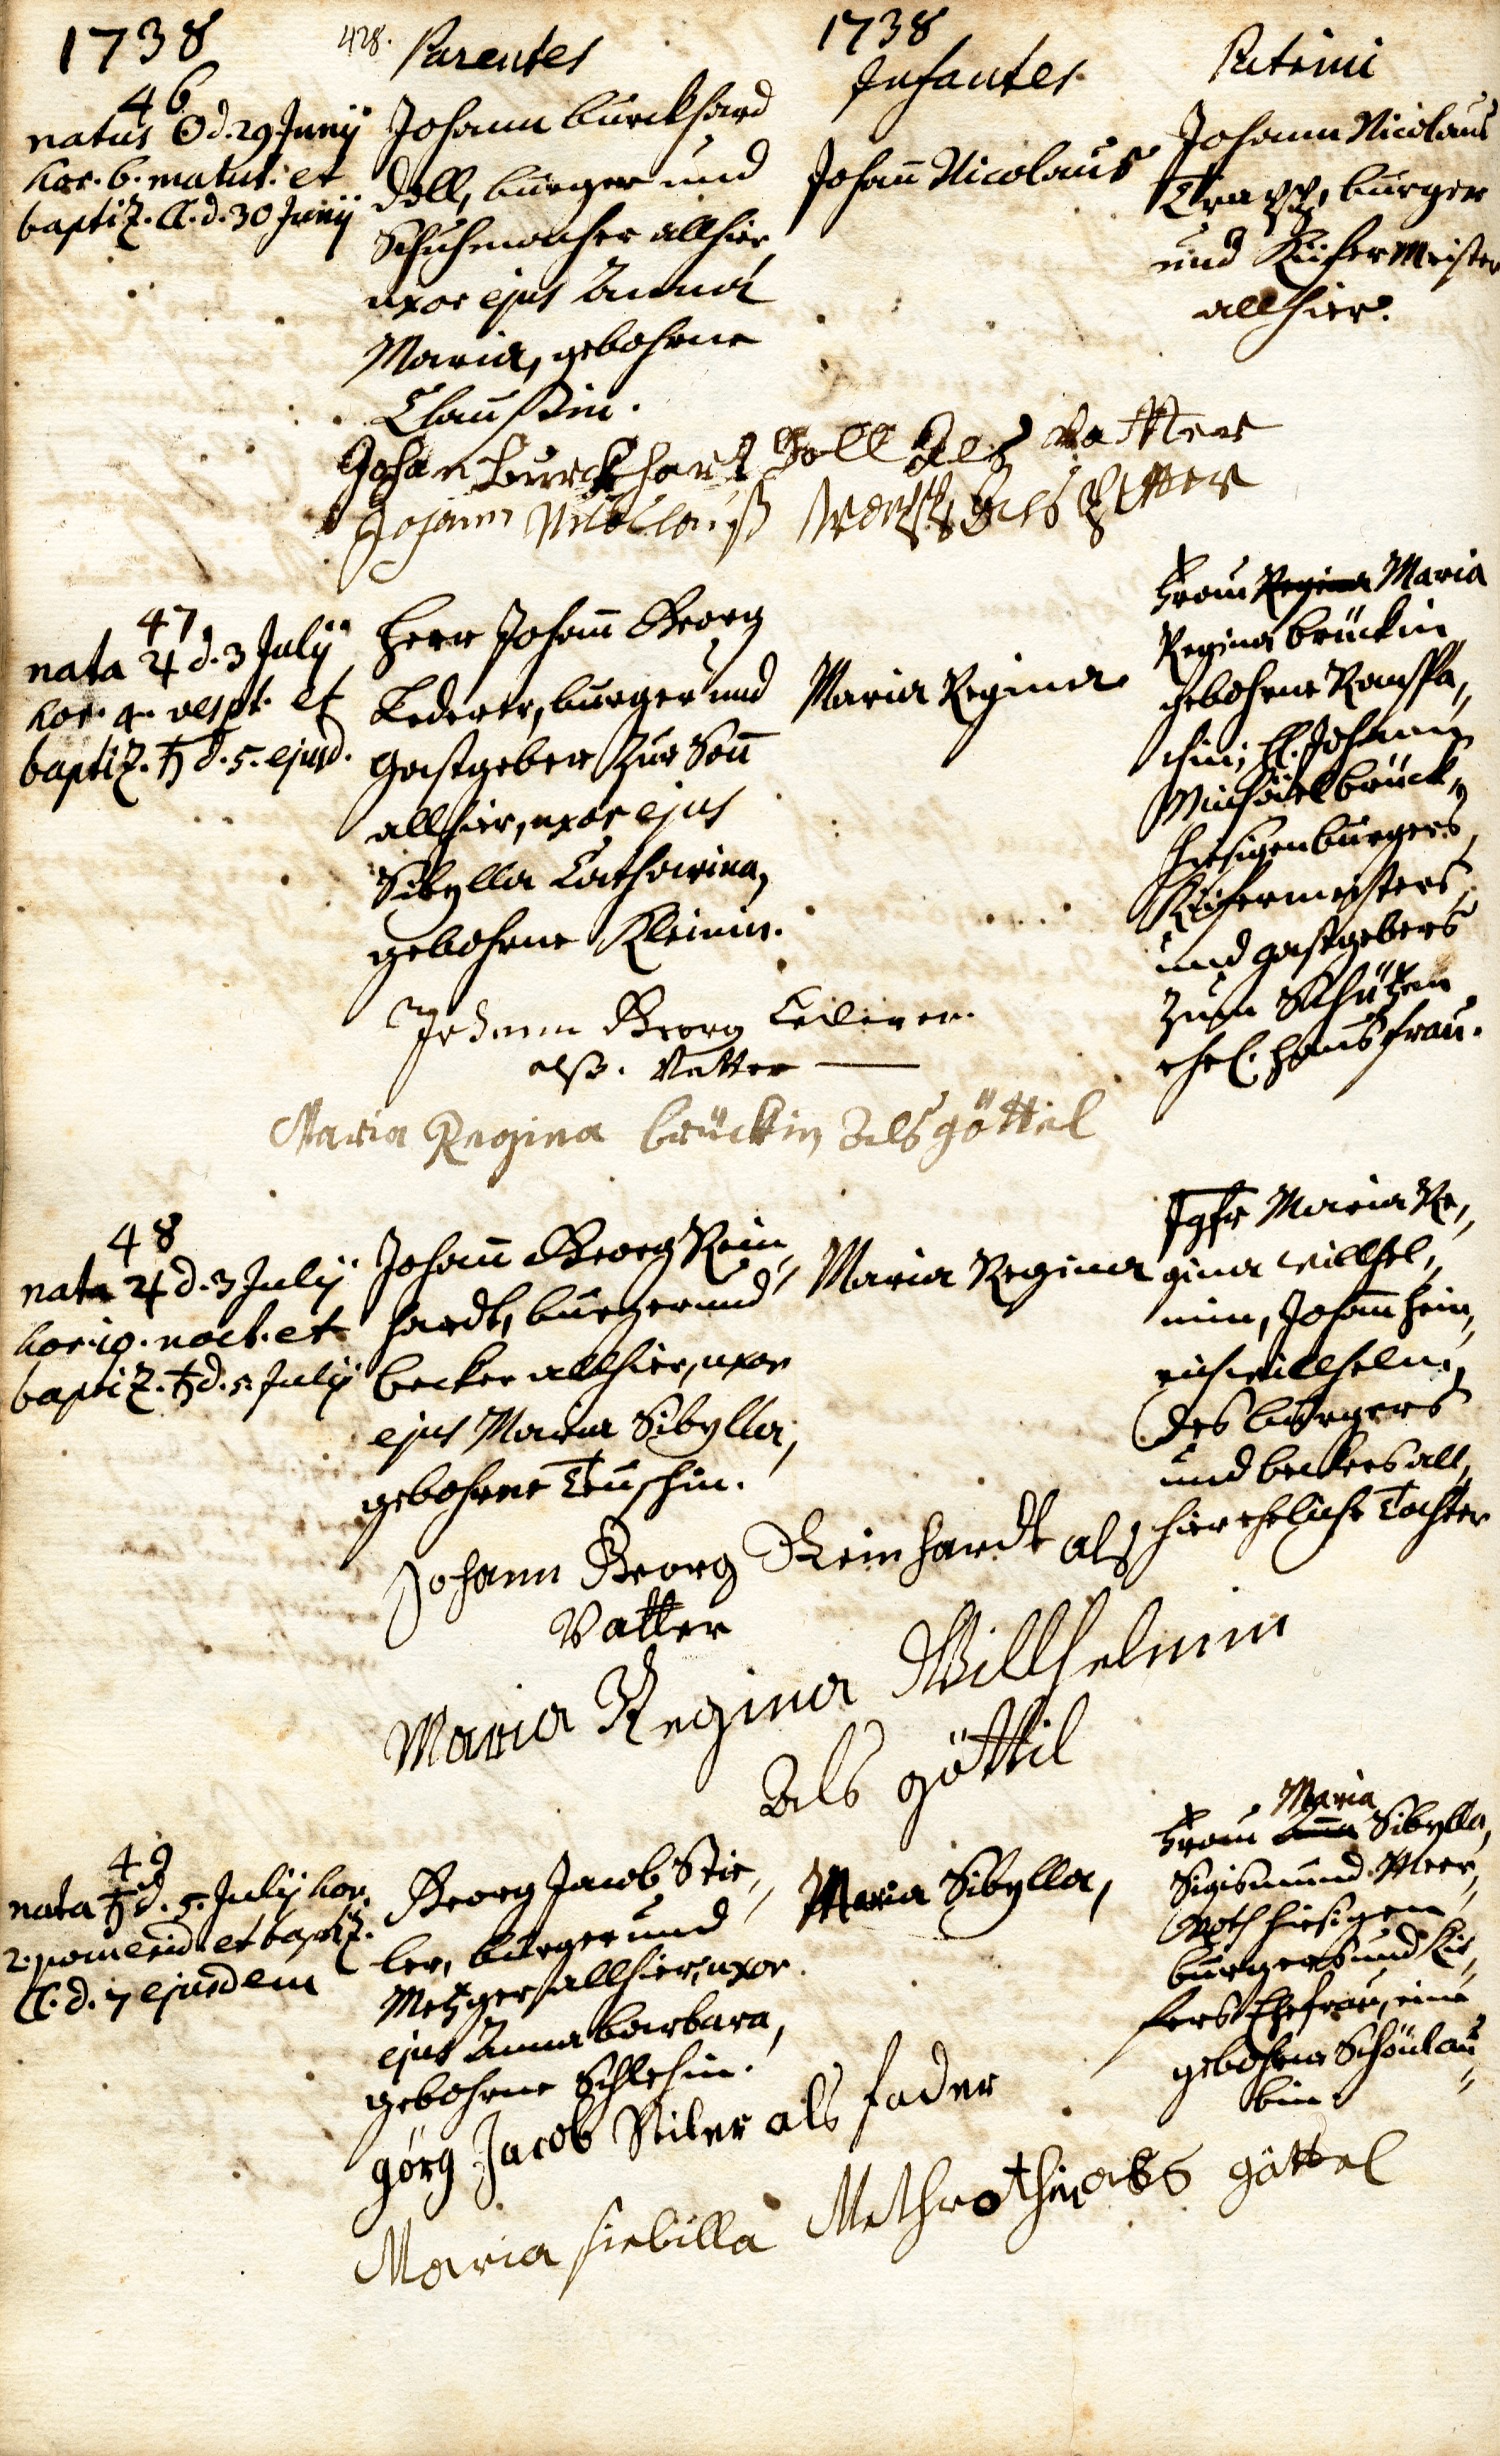 1738
428.
Parentes
1738
Infantes.
Patrini
46
natus ☉ d. 29 Junij
hor. 6. matut: et
baptiz. ☾. d. 30 Junij
Johann Burckhard
Doll, burger und
Schuhmacher allhier,
uxor ejus Anna
Maria, gebohrne
Claußin.
Johann Nicolaus
Johann Nicolaus
burger
und Küfer Meister
allhier.
Johan Burckhart Doll als Vatter
Johann Nicolauß als Petter
47
nata ♃ d. 3 Julij
hor. 4. vespt. et
baptiz. ♄ d. 5. ejusd.
Herr Johann Georg
Lederer, burger und
gastgeber zur Sonn
allhier, uxor ejus
Sibylla Catharina,
gebohrne Kleinin.
Maria Regina
Frau Regina Maria
Regina Brückin
gebohrne Rauschba,,
chin, H. Johann
Michael Brück,,
hiesigen burgers,
Küfermeisters,
und gastgebers
zum Schützen
ehel. haußfrau.
Johann Georg
alß. Vatter
Maria Regina Brückin als göttel
48
nata ♃ d. 3 Julij
hor. 10. noct. et
baptiz. ♄ d. 5. Julij
Johann Georg Rein,,
hardt, burger und
becker allhier, uxor
ejus Maria Sibylla,
gebohrne Teuschin.
Maria Regina
Jgfr Maria Re,,
gina Willhel,,
min, Johann Hein,,
rich Willhelm,
des burgers
und beckers all,,
hier eheliche Tochter
Johann Georg Reinhardt als
Vatter
Maria Regina Willhelmin
Als göttil
49
nata ♄ d. 5. Julij hor.
2. pomerid. et baptiz.
☾. d. 7 ejusdem
Georg Jacob Stie,,
ler, burger und
Metzger allhier, uxor
ejus Anna Barbara,
gebohrne Schlehin.
Maria Sibylla,
Maria
Frau Anna Sibylla,
Sigismund Meer,,
roth hiesigen
burgers und Kie,,
fers Ehefrau, eine
gebohrne Schönlau,,
bin
görg Jacob Stiler als fader
Maria siebilla Methrothin als göttel